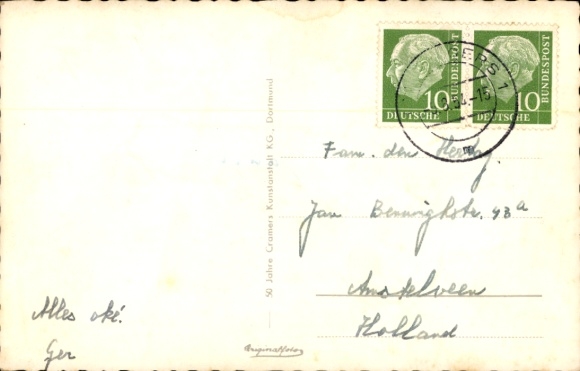 10
DEUTSCHE
BUNDESPOST
10
DEUTSCHE
BUNDESPOST
ERS 1
54.-15
50 Jahre Cramers Kunstanstalt KG, Dortmund
Fam. den
Jan 43a
Amstelveen
Holland
Alles oké!
Ger
Originalfoto